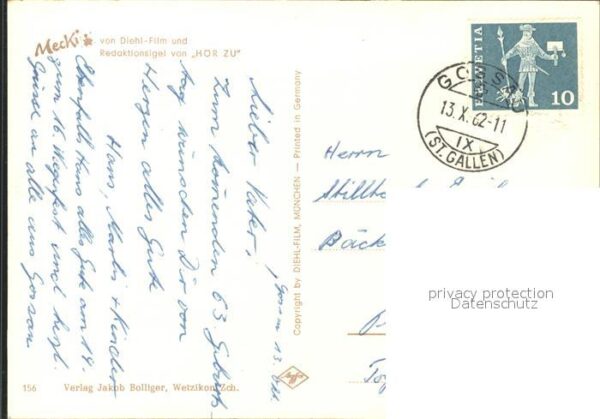 Mecki von Diehl-Film und
Redaktionsigel von „HÖR ZU"
Gossau 13. Okt.
Lieber Vater,
Zum kommenden 63 Geburts-
tag wünschen Dir von
Herzen alles Gute
Hans, Martis + Kinder
Ebenfalls Hans alles Gute am 14.
zum 16. Wiegenfest und herzl.
Grüsse an alle aus Gossau
Copyright by DIEHL-FILM, MÜNCHEN — Printed in Germany
Agfa
156 Verlag Jakob Bolliger, Wetzikon/Zch.
HELVETIA
10
GOSSAU
13.X.62-11
IX
(ST. GALLEN)
Herrn
Bäck
privacy protection
Datenschutz